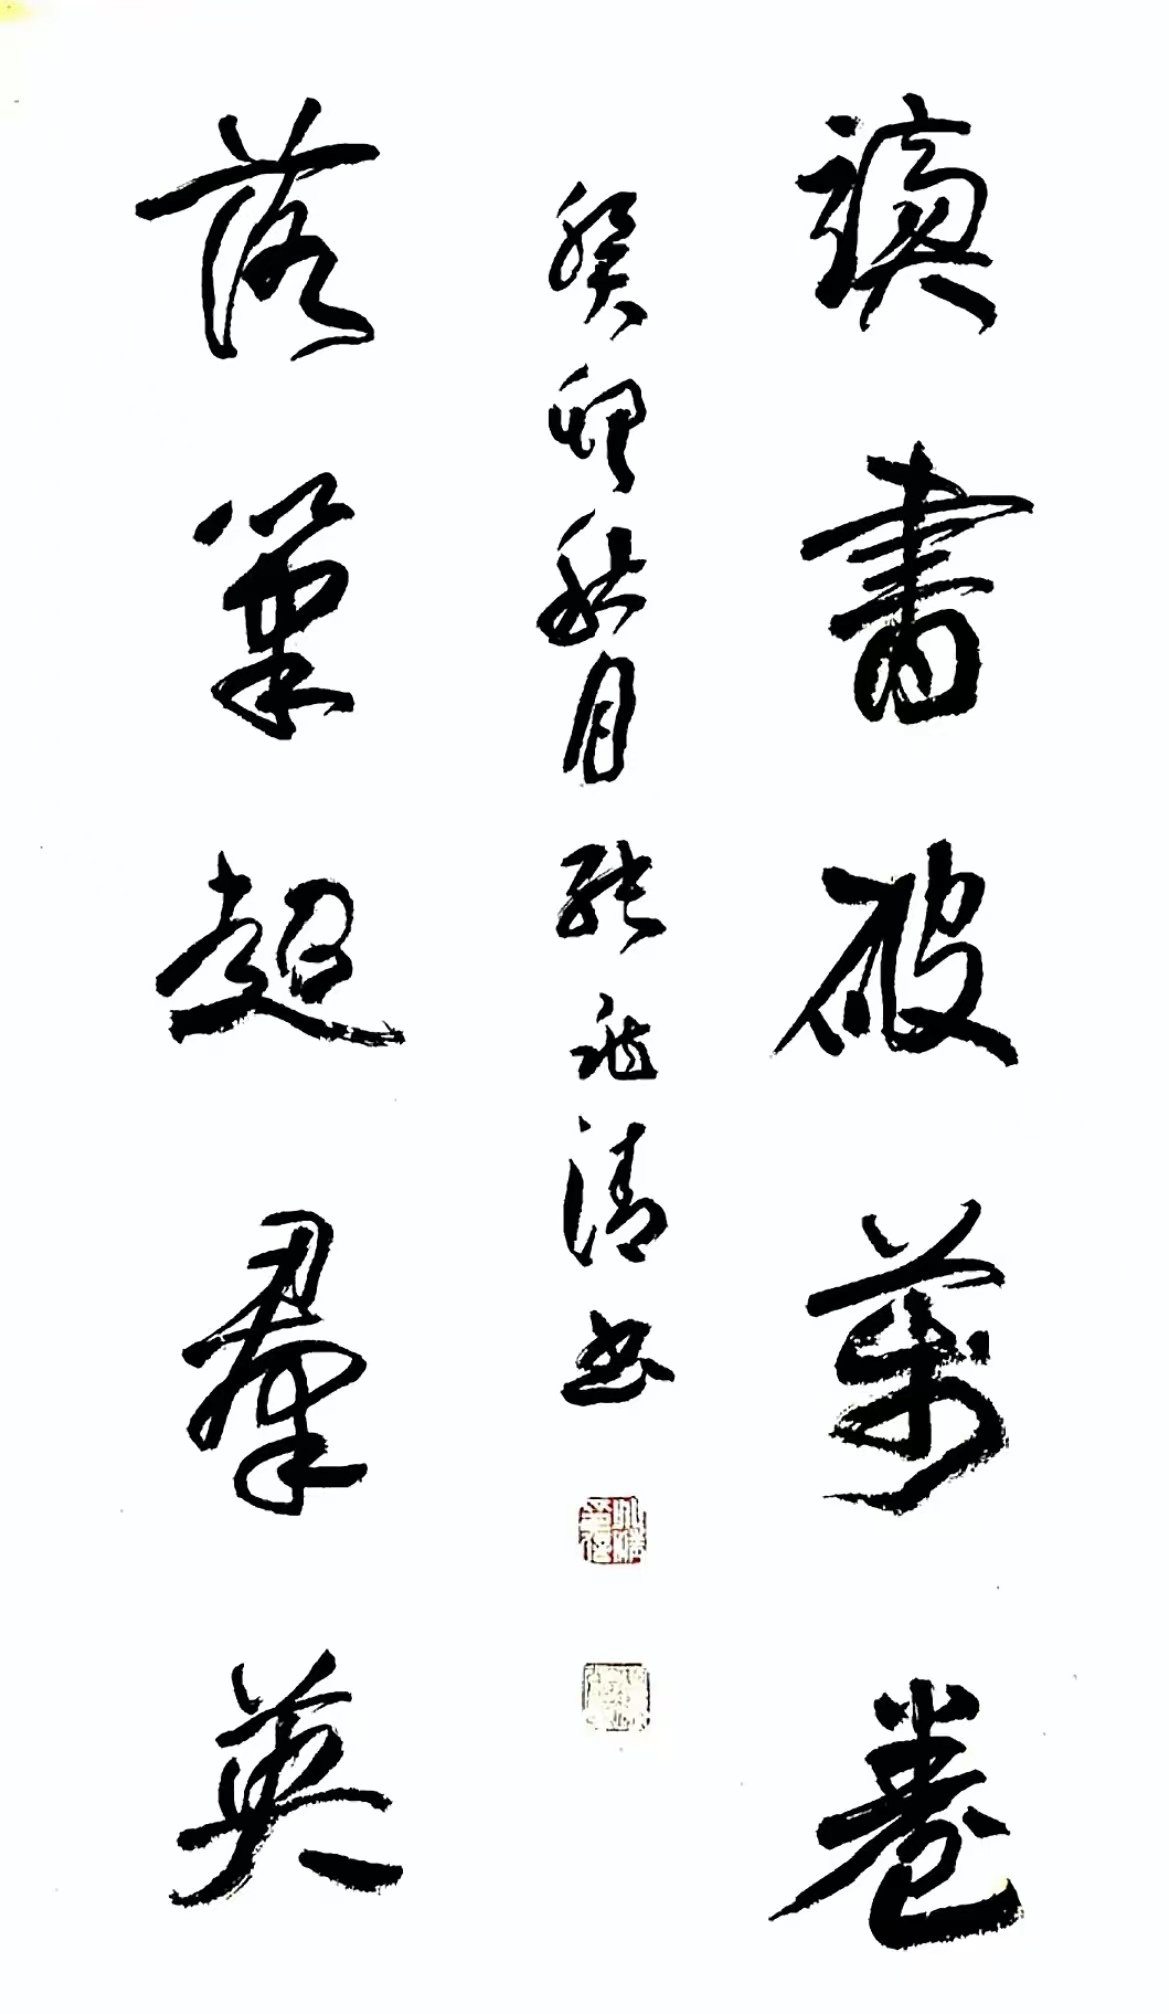 讀書破萬卷
癸卯秋月張兆清書
落筆超羣英